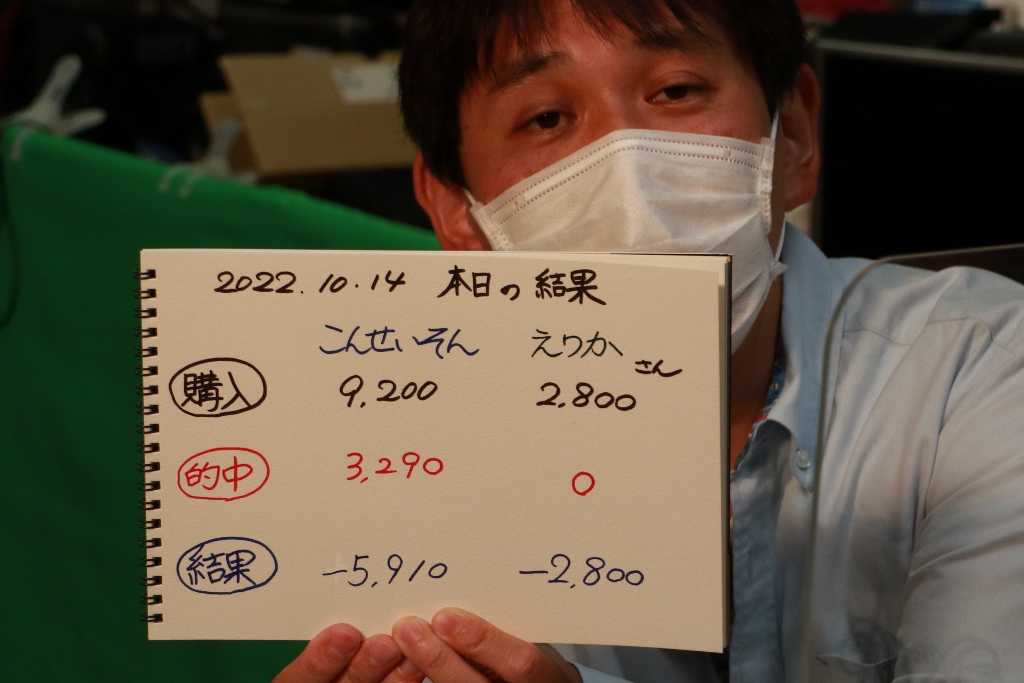 2022.10.14 本日の結果
こんせいそん えりかさん
購入 9,200 2,800
的中 3,290 0
結果 -5,910 -2,800